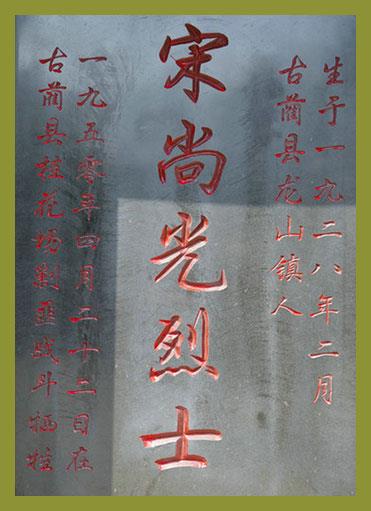 生于一九二八年二月
古蔺县龙山镇人
宋尚光烈士
一九五零年四月二十二日在
古蔺县桂花场剿匪战斗牺牲